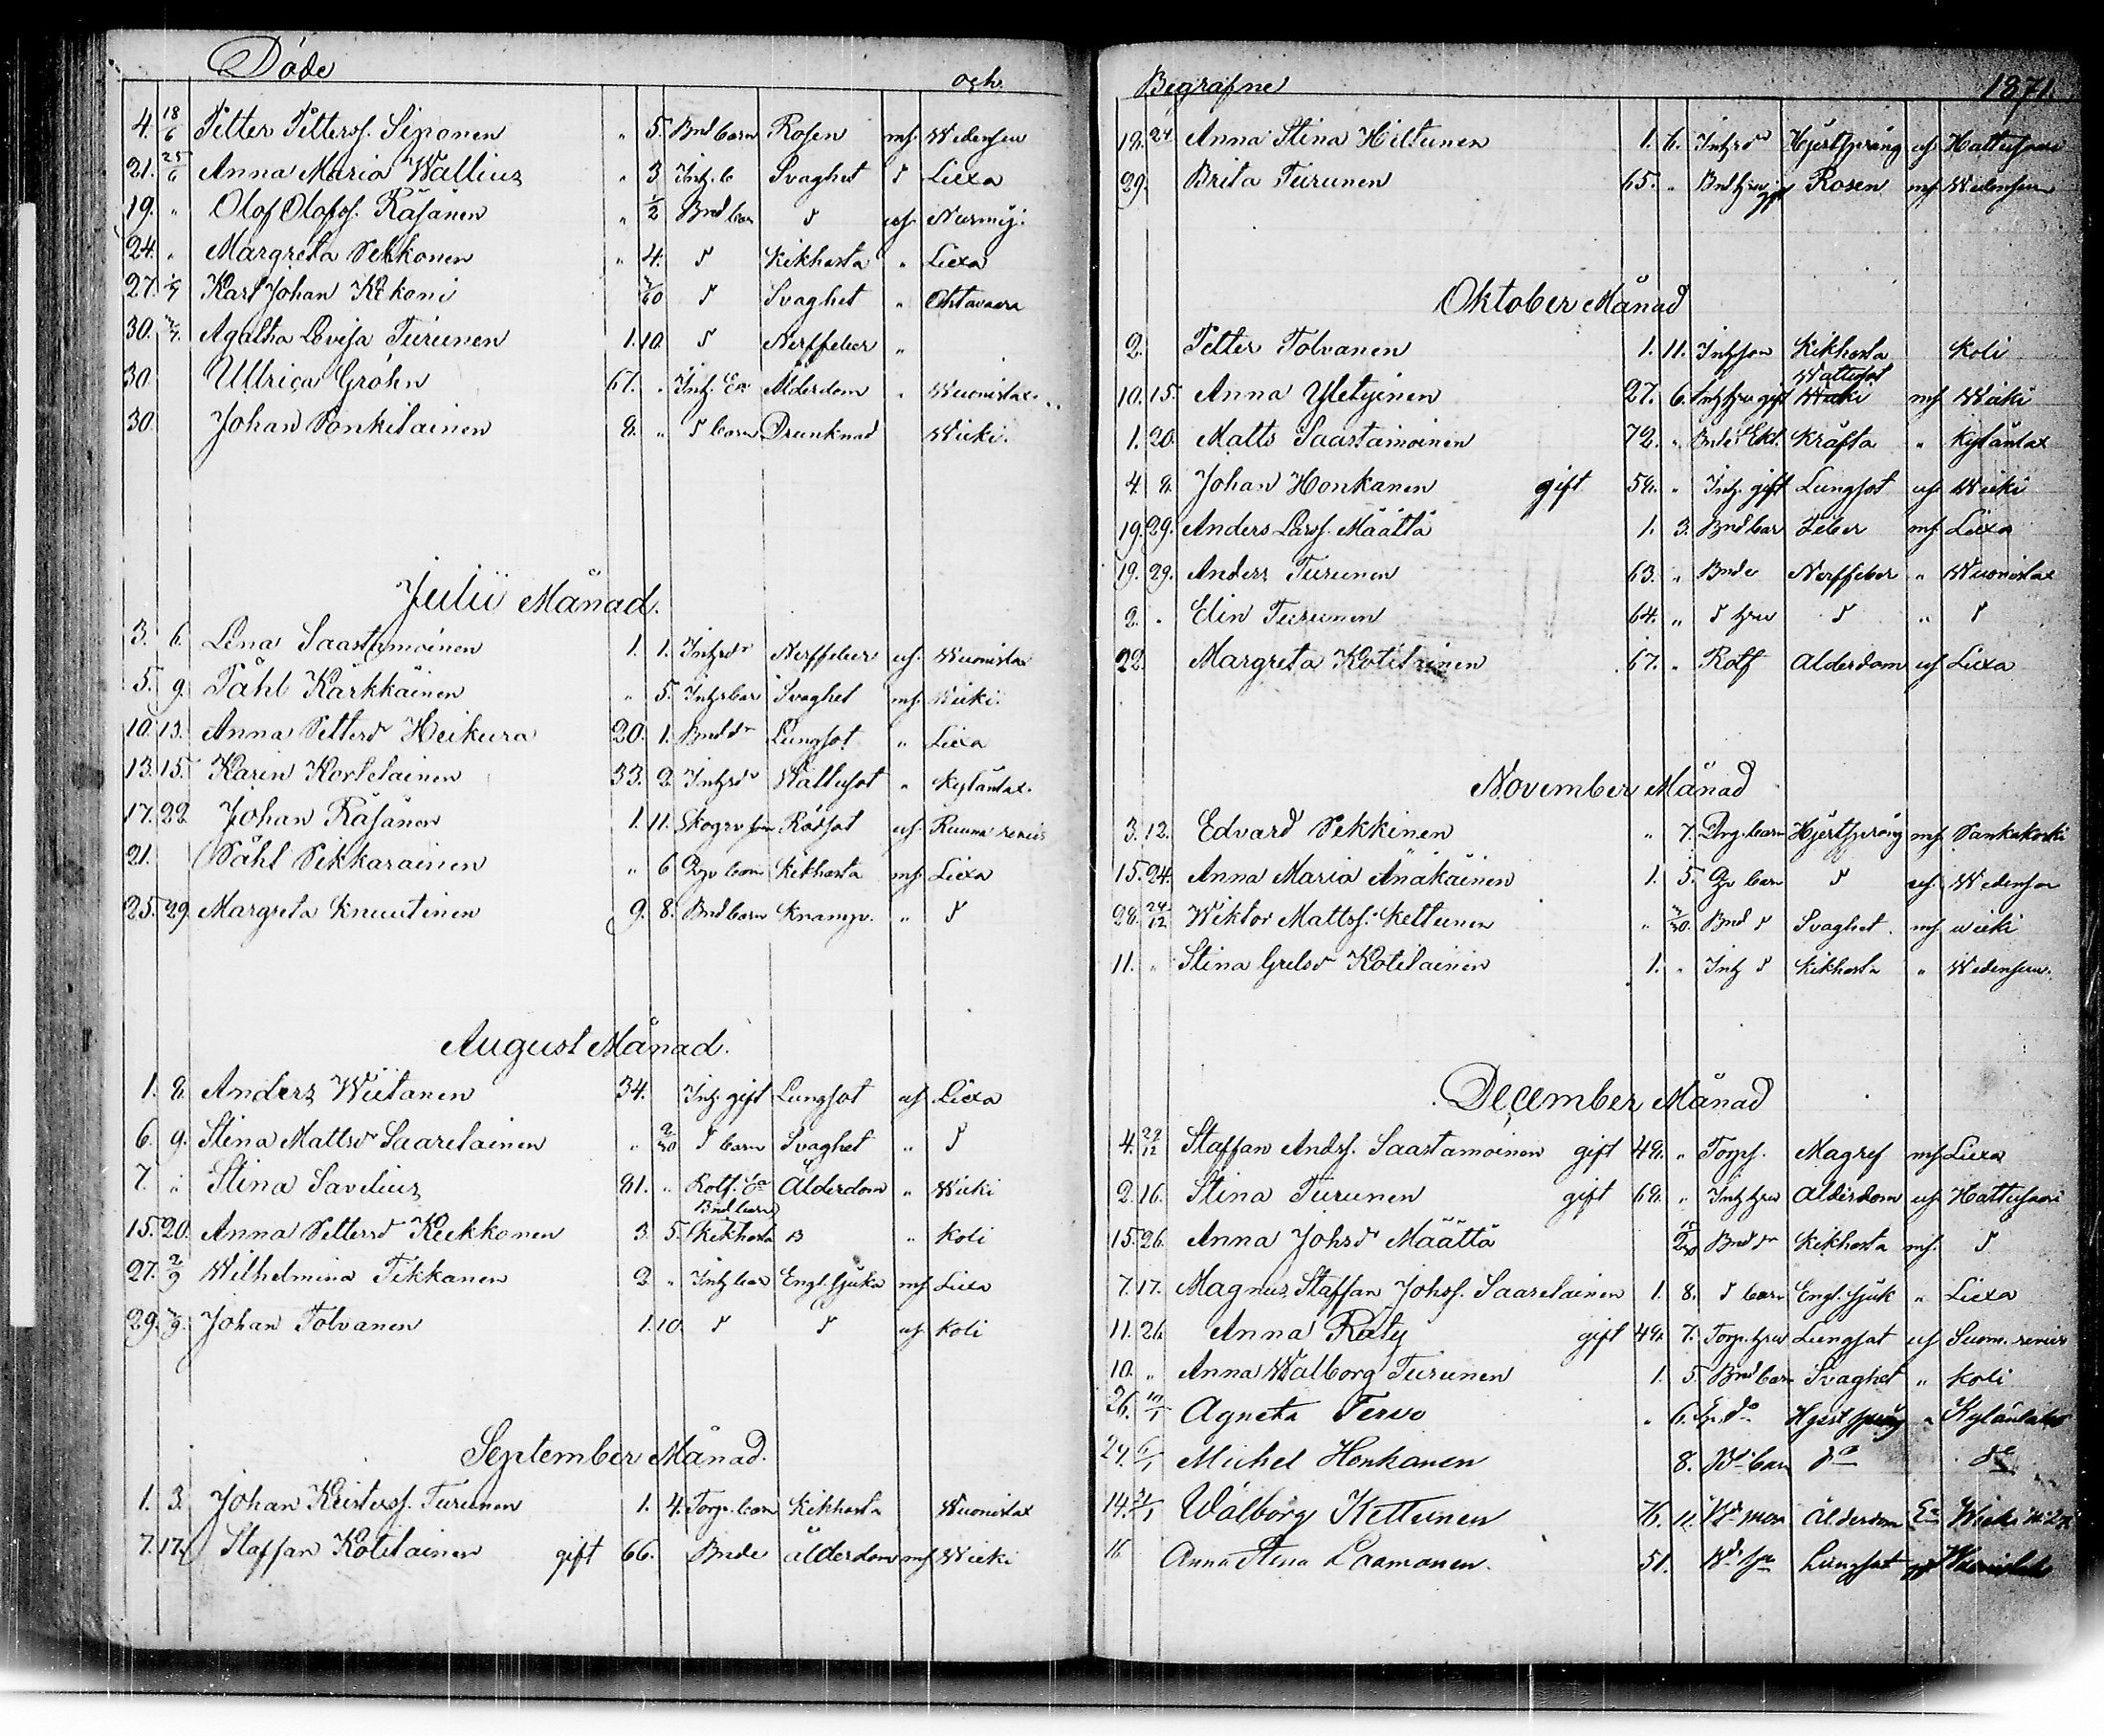 Döde och
4. 18/6 Petter Petterss. Siponen " 5. Bnd barn Rosen mf. Wedensuu
21. 25/6 Anna Maria Wallius " 3 Inh. b Svaghet Liexa
19. " Olof Olofss. Räsänen " 1/2 Bnd barn uf. Nurmij.
24. " Margreta Pekkonen " 4. Kikhosta " Liexa
27. Karl Johan Kekoni Svaghet "
30. Agatha Lovisa Turunen 1. 10. Nerffeber "
30 Ullrica Gröhn 67. " Inh. Ea Ålderdom " Wuonislax
30 Johan Pankilainen 8. " barn Drunknad Wieki.
Julii Månad.
3. 6. Lena Saastamoinen 1. 1. Inhsdr Nerffeber uf. Wuonislax
5. 9. Påhl Kärkkäinen " 5. Inhs bar Svaghet mf. Wieki.
10. 13. Anna Pettersdr Heikura 20. 1. Bnddr Lungsot " Liexa
13. 15. Karin Kortelainen 33. 2. Inhsdr Wattusot " Kylänlax.
17. 22 Johan Räsänen 1. 11. Rödsot uf. Ruuna
21. Påhl Pikkarainen " 6 barn Kikhosta mf. Liexa
25. 29. Margreta Knuutinen 9. 8. Bnd barn Kramp. "
August Månad.
1. 8. Anders Wiitanen 34. Inh. gift Lungsot uf. Liexa
6. 9. Stina Mattsdr Saarelainen " barn Svaghet "
7. " Stina Savelius 81. " Rotf. Ea Ålderdom " Wieki
Bnd barn
15. 20. Anna Pettersdr Kiekkonen 3. 5. Kikhosta " Koli
27. 2/9 Wilhelmina Tikkanen 2 " Inh bar Engl. sjuka mf. Liexa
29. Johan Tolvanen 1. 10 uf. Koli
September Månad.
1. 3. Johan Kristerss. Turunen 1. 4. Torp. barn Kikhosta Wuonislax
7. 17. Staffan Kotilainen gift 66. Bnde ålderdom mf. Wieki
Begrafne 1871.
18. 24. Anna Stina Hiltunen 1. 6. Inhsdr Hjertsprång uf. Hattusaari
29. Brita Turunen 65. " Rosen mf. Wedensuu
Oktober Månad
2. Petter Tolvanen 1. 11. Inhson Kikhosta Koli
Wattusot
10. 15. Anna Yletyinen 27. 6. Inhhu gift Wieki mf. Wieki
1. 20. Matts Saastamoinen 72. " Kräfta " Kylänlax
4. 8. Johan Honkanen gift 58. " Inh. gift Lungsot uf. Wieki
19. 29. Anders Larss. Määttä 1. 3. Bnd bar Feber mf. Liexa
19. 29. Anders Turunen 63. " Bnde Nerffeber " Wuonislax
2. " Elin Turunen 64. " hu "
22. Margreta Kotilainen 67. " Rotf Alderdom uf. Liexa
November Månad
3. 12. Edvard Pekkinen " 7. barn Hjertsprång mf. Pankakoski
15. 24. Anna Maria Änäkäinen 1. 5. barn uf. Wedensuu
28. 24/12 Wiktor Mattss. Kettunen " Bnd Svaghet mf. Wieki
11. " Stina Gretsdr Kotilainen 1. " Inh Kikhosta " Wedensuu.
December Månad
4. 29/12 Staffan Andss. Saastamoinen gift 48. " Torp. Magref mf. Liexa
2. 16. Stina Turunen gift 68. " Inh hu Alderdom uf. Hattusaari
15. 26. Anna Johsdr Määttä Bnddr Kikhosta mf.
7. 17. Magnus Staffan Johss. Saarelainen 1. 8. barn Engl. sjuk " Liexa
11. 26. Anna Räty gift 48. 7. Torp. hu Lungsot uf.
10. " Anna Walborg Turunen 1. 5. Bnd barn Svaghet " Koli
26. Agneta Tervo " 6. Hjertsprång " Kylänlaks
24. 6/1 Michel Honkanen 8. barn do do
14. Walborg Kettunen 76. 11. mor Ålderdom Ea Wieki
18 Anna Stina Laamanen. 51. Lungsot Wuonislaks